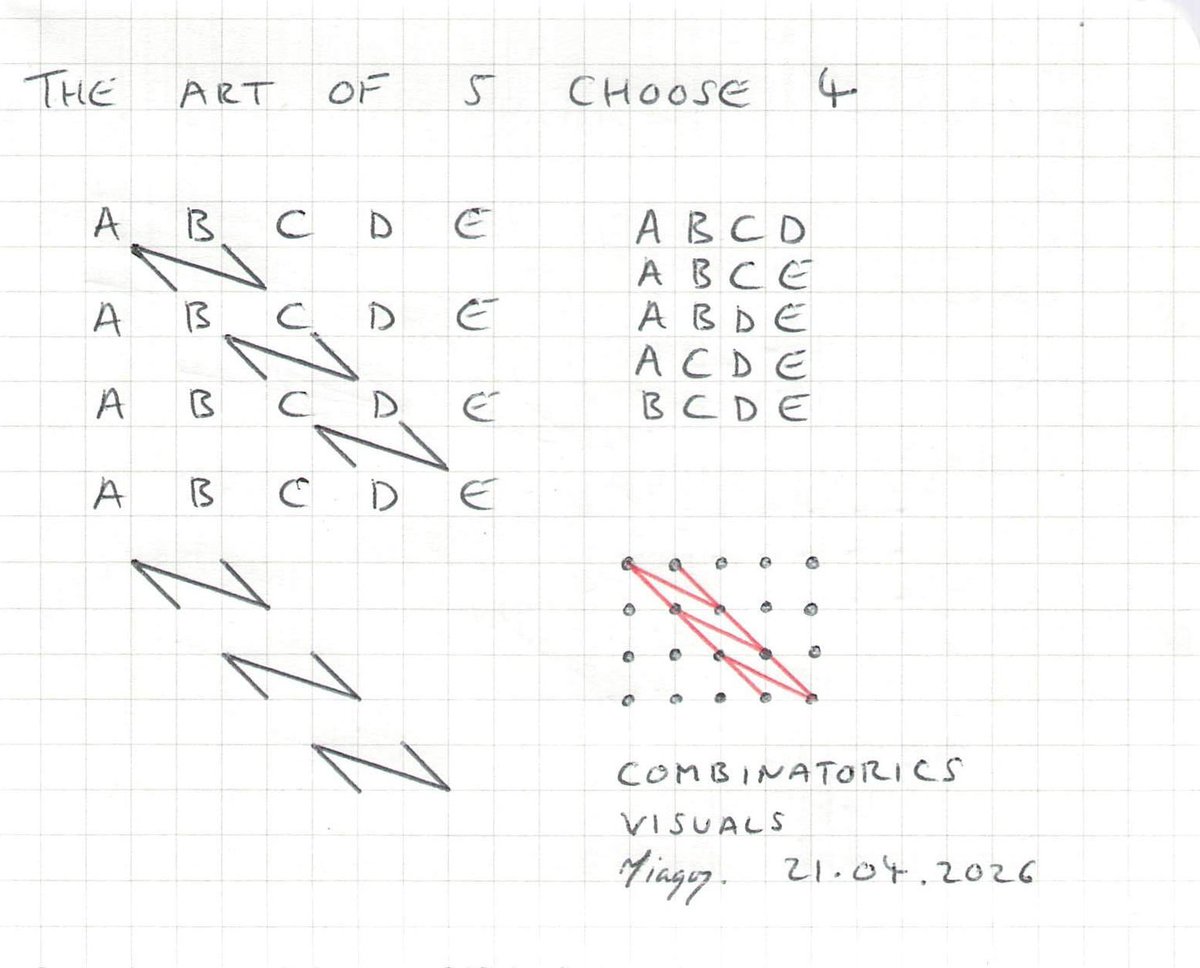 THE ART OF 5 CHOOSE 4
A B C D E
A B C D E
A B C D E
A B C D E
A B C D
A B C E
A B D E
A C D E
B C D E
COMBINATORICS
VISUALS
21.04.2026